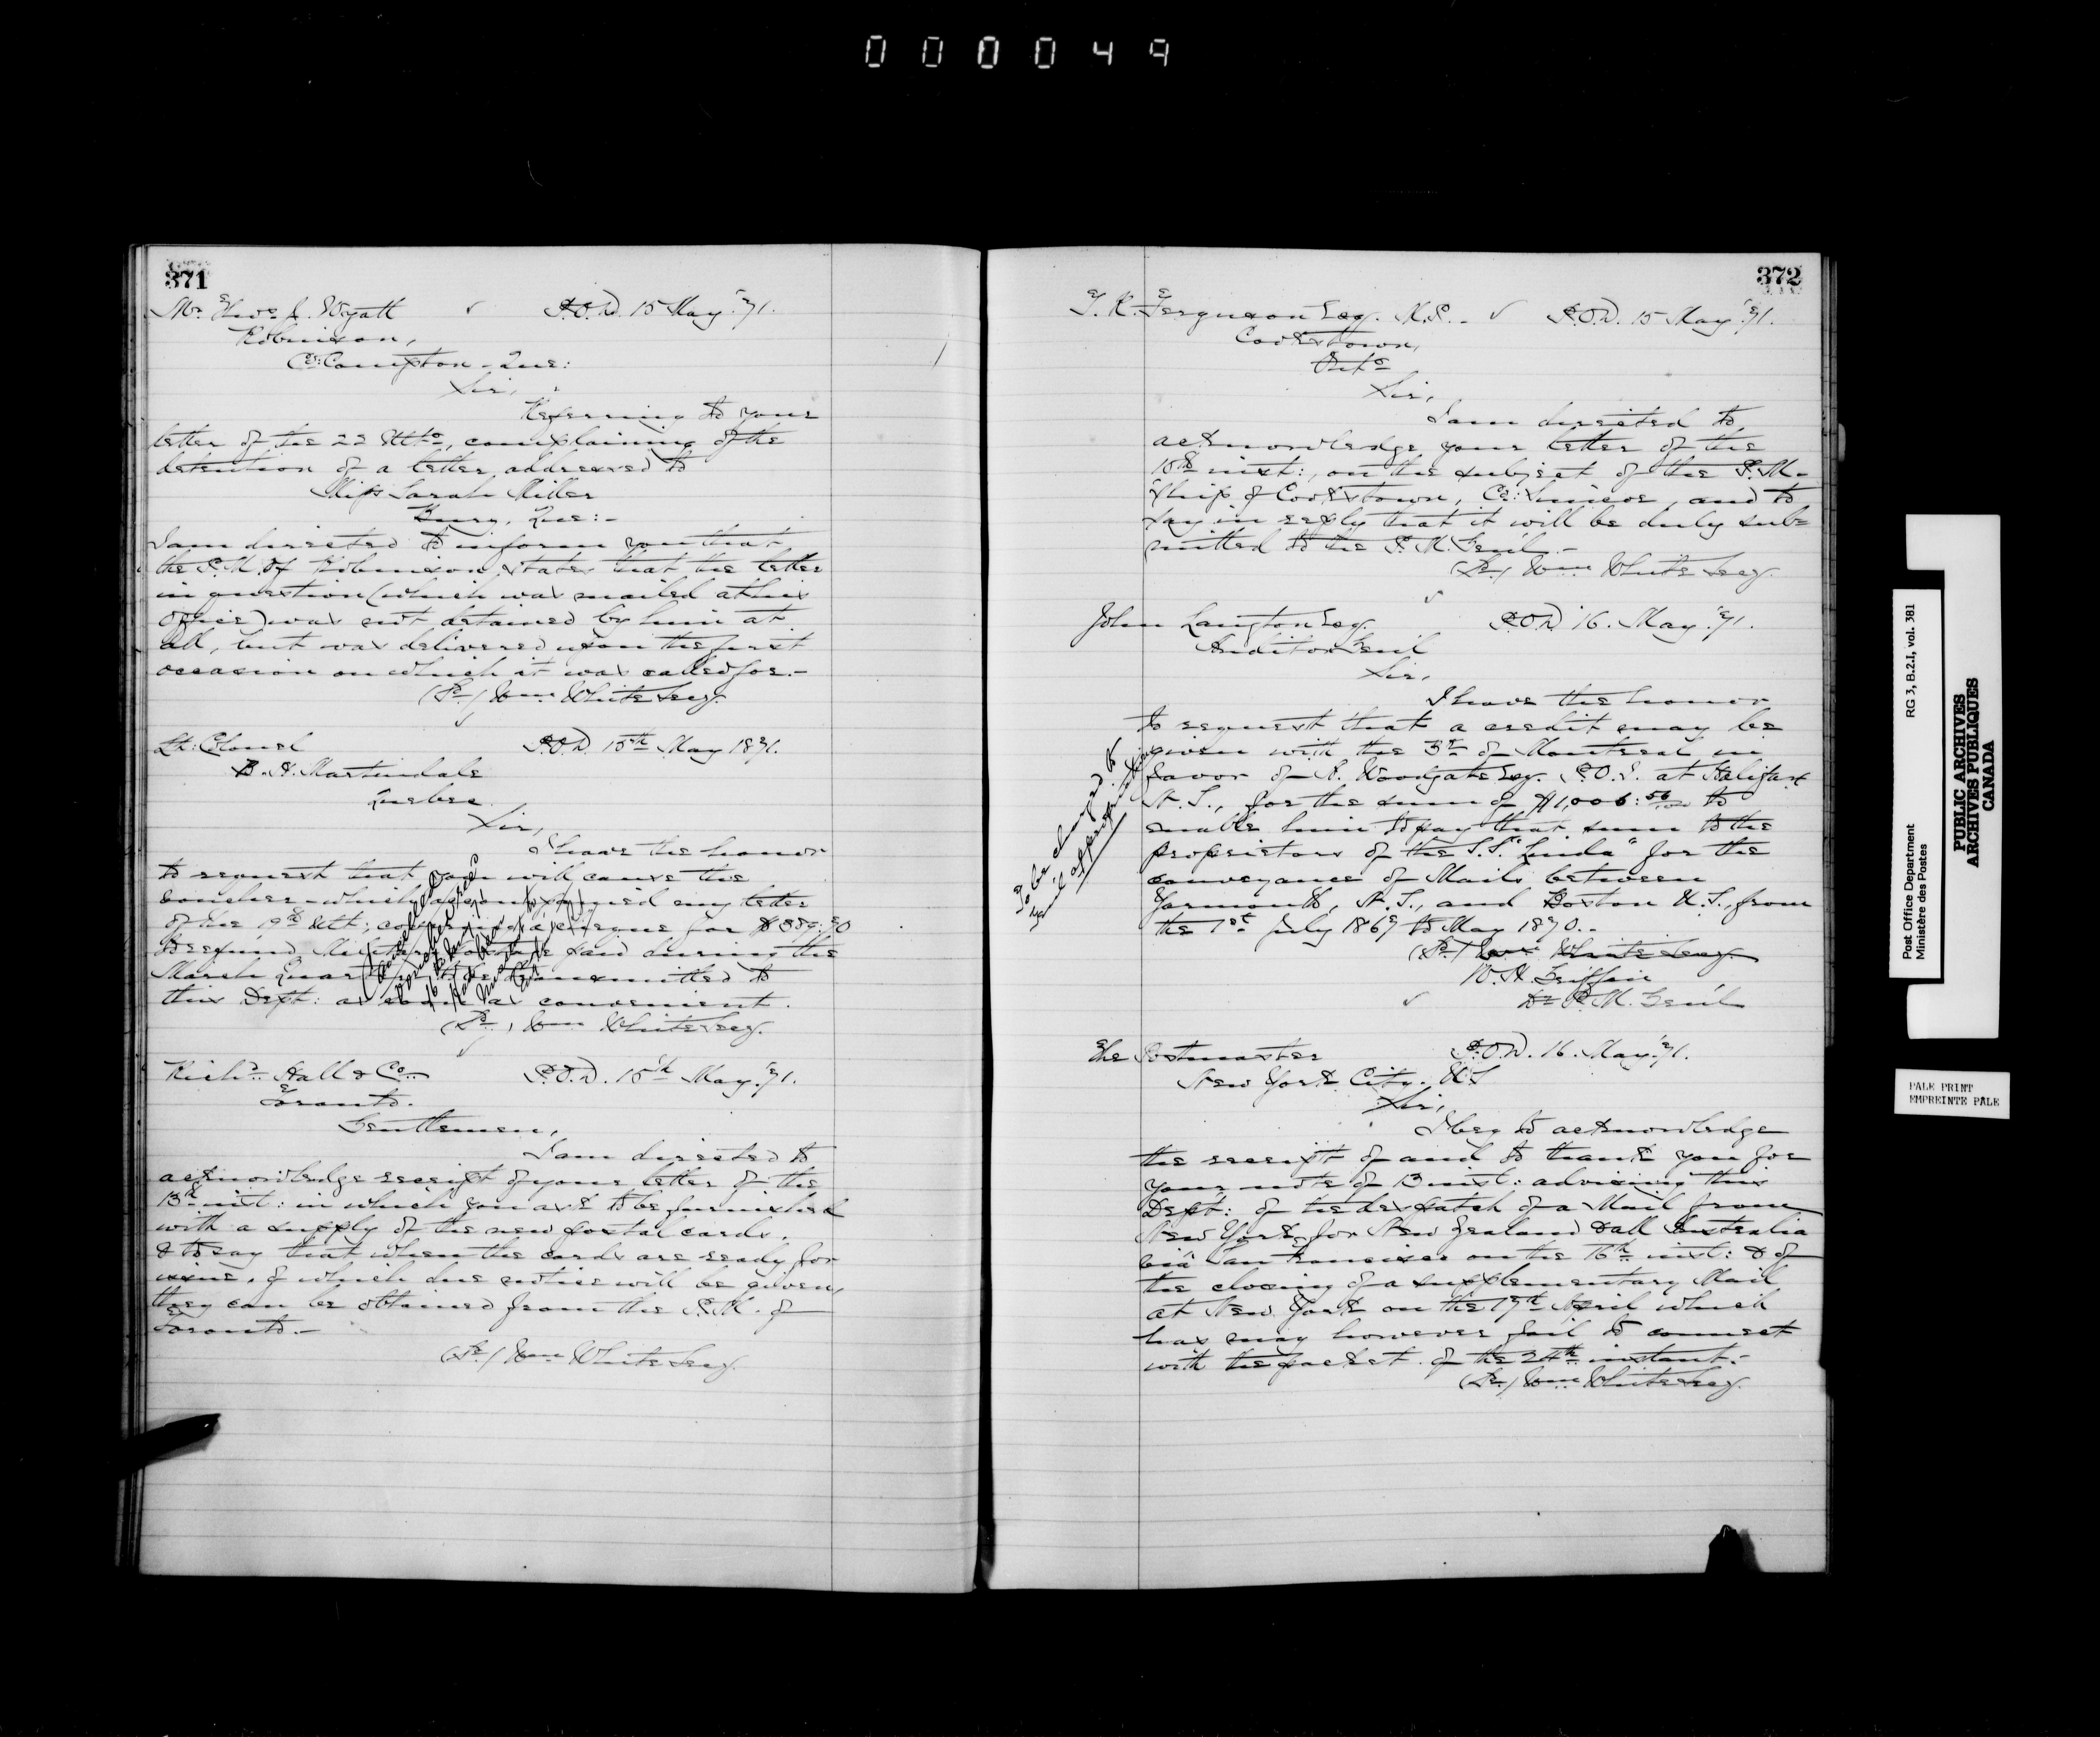 000049
371
Mr. Thos J. Wyatt P.O.D. 15 May '71.
Robinson,
Co: Compton - Que:
Sir,
Referring to your
letter of the 22 Ulto, complaining of the
detention of a letter addressed to
Miss Sarah Miller
Bury, Que:-
I am directed to inform you that
the P.M. of Robinson states that the letter
in question (which was mailed at his
office) was not detained by him at
all, but was delivered upon the first
occasion on which it was called for.-
(Sd) Wm White Secy.
Lt: Colonel P.O.D. 15th May 1871.
B. H. Martindale
Quebec.
Sir,
I have the honor
to request that you will cause the
voucher - which accompanied my letter
of the 19th Ult; covering a cheque for $389:70
to refund Military Postage paid during the
March Quarter to be transmitted to
this Dept: as soon as convenient.
(Sd) Wm White Secy.
Cancelled
voucher
16
Richd. Hall & Co. P.O.D. 15th May '71.
Toronto.
Gentlemen,
I am directed to
acknowledge receipt of your letter of the
13th inst: in which you ask to be furnished
with a supply of the new postal cards.
& to say that when the cards are ready for
issue, of which due notice will be given,
they can be obtained from the P.M. of
Toronto.-
(Sd) Wm White Secy.
372
T. R. Ferguson Esq. M.P. - P.O.D. 15 May '71.
Cookstown,
Onto
Sir,
I am directed to
acknowledge your letter of the
10th inst:, on the subject of the P.M.-
ship of Cookstown, Co: Simcoe, and to
say in reply that it will be duly sub=
mitted to the P.M. Gen'l.-
(Sd) Wm White Secy.
John Langton Esq. P.O.D. 16. May '71.
Auditor Gen'l
Sir,
I have the honor
to request that a credit may be
given with the Bk of Montreal in
favor of A. Woodgate Esq. P.O.I. at Halifax
N.S., for the sum of $1,006: 56/100 to
enable him to pay that sum to the
proprietors of the S.S. "Linda" for the
conveyance of Mails between
Yarmouth, N.S., and Boston U.S., from
the 1st July 1869 to May 1870.-
(Sd) Wm White Secy.
W. H. Griffin
Dy P.M. Gen'l
To be charged to
The Postmaster P.O.D. 16. May '71.
New York City. U.S
Sir,
I beg to acknowledge
the receipt of and to thank you for
your note of 13 inst: advising this
Dept: of the despatch of a Mail from
New York for New Zealand & all Australia
viâ San Francisco on the 16th inst: & of
the closing of a supplementary Mail
at New York on the 17th April which
has may however fail to connect
with the packet of the 24th instant:-
(Sd) Wm White Secy.
Post Office Department RG 3, B.2.I, vol. 381
Ministère des Postes
PUBLIC ARCHIVES
ARCHIVES PUBLIQUES
CANADA
PALE PRINT
EMPREINTE PÂLE